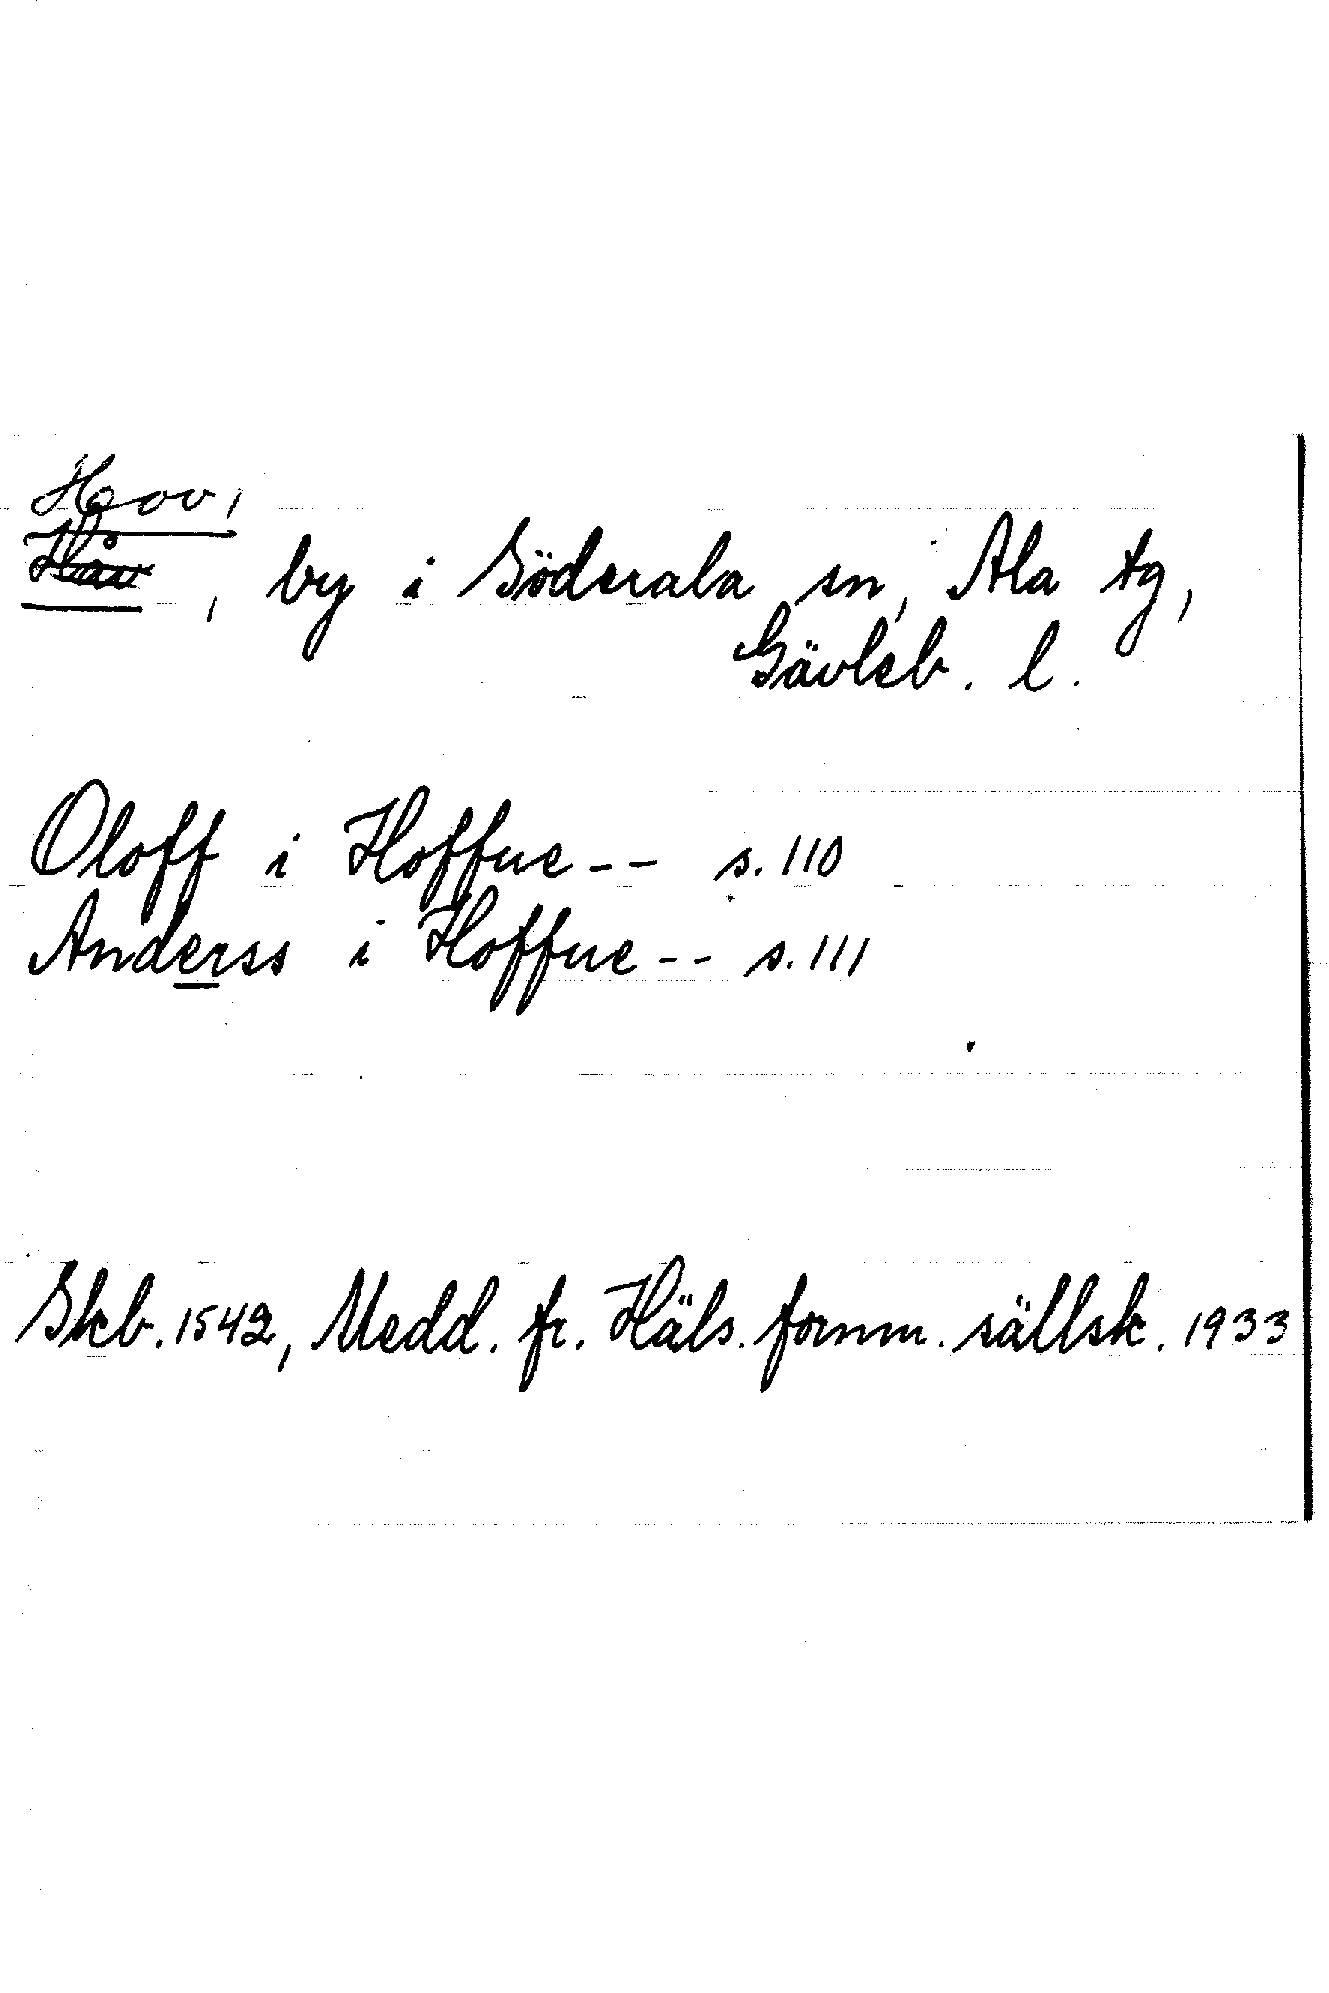 Hov,
Håv, by i Söderala sn, Ala tg,
Gävleb. l.
Oloff i Hoffue -- s. 110
Anderss i Hoffue -- s. 111
Skb. 1542, Medd. fr. Häls. fornm. sällsk. 1933